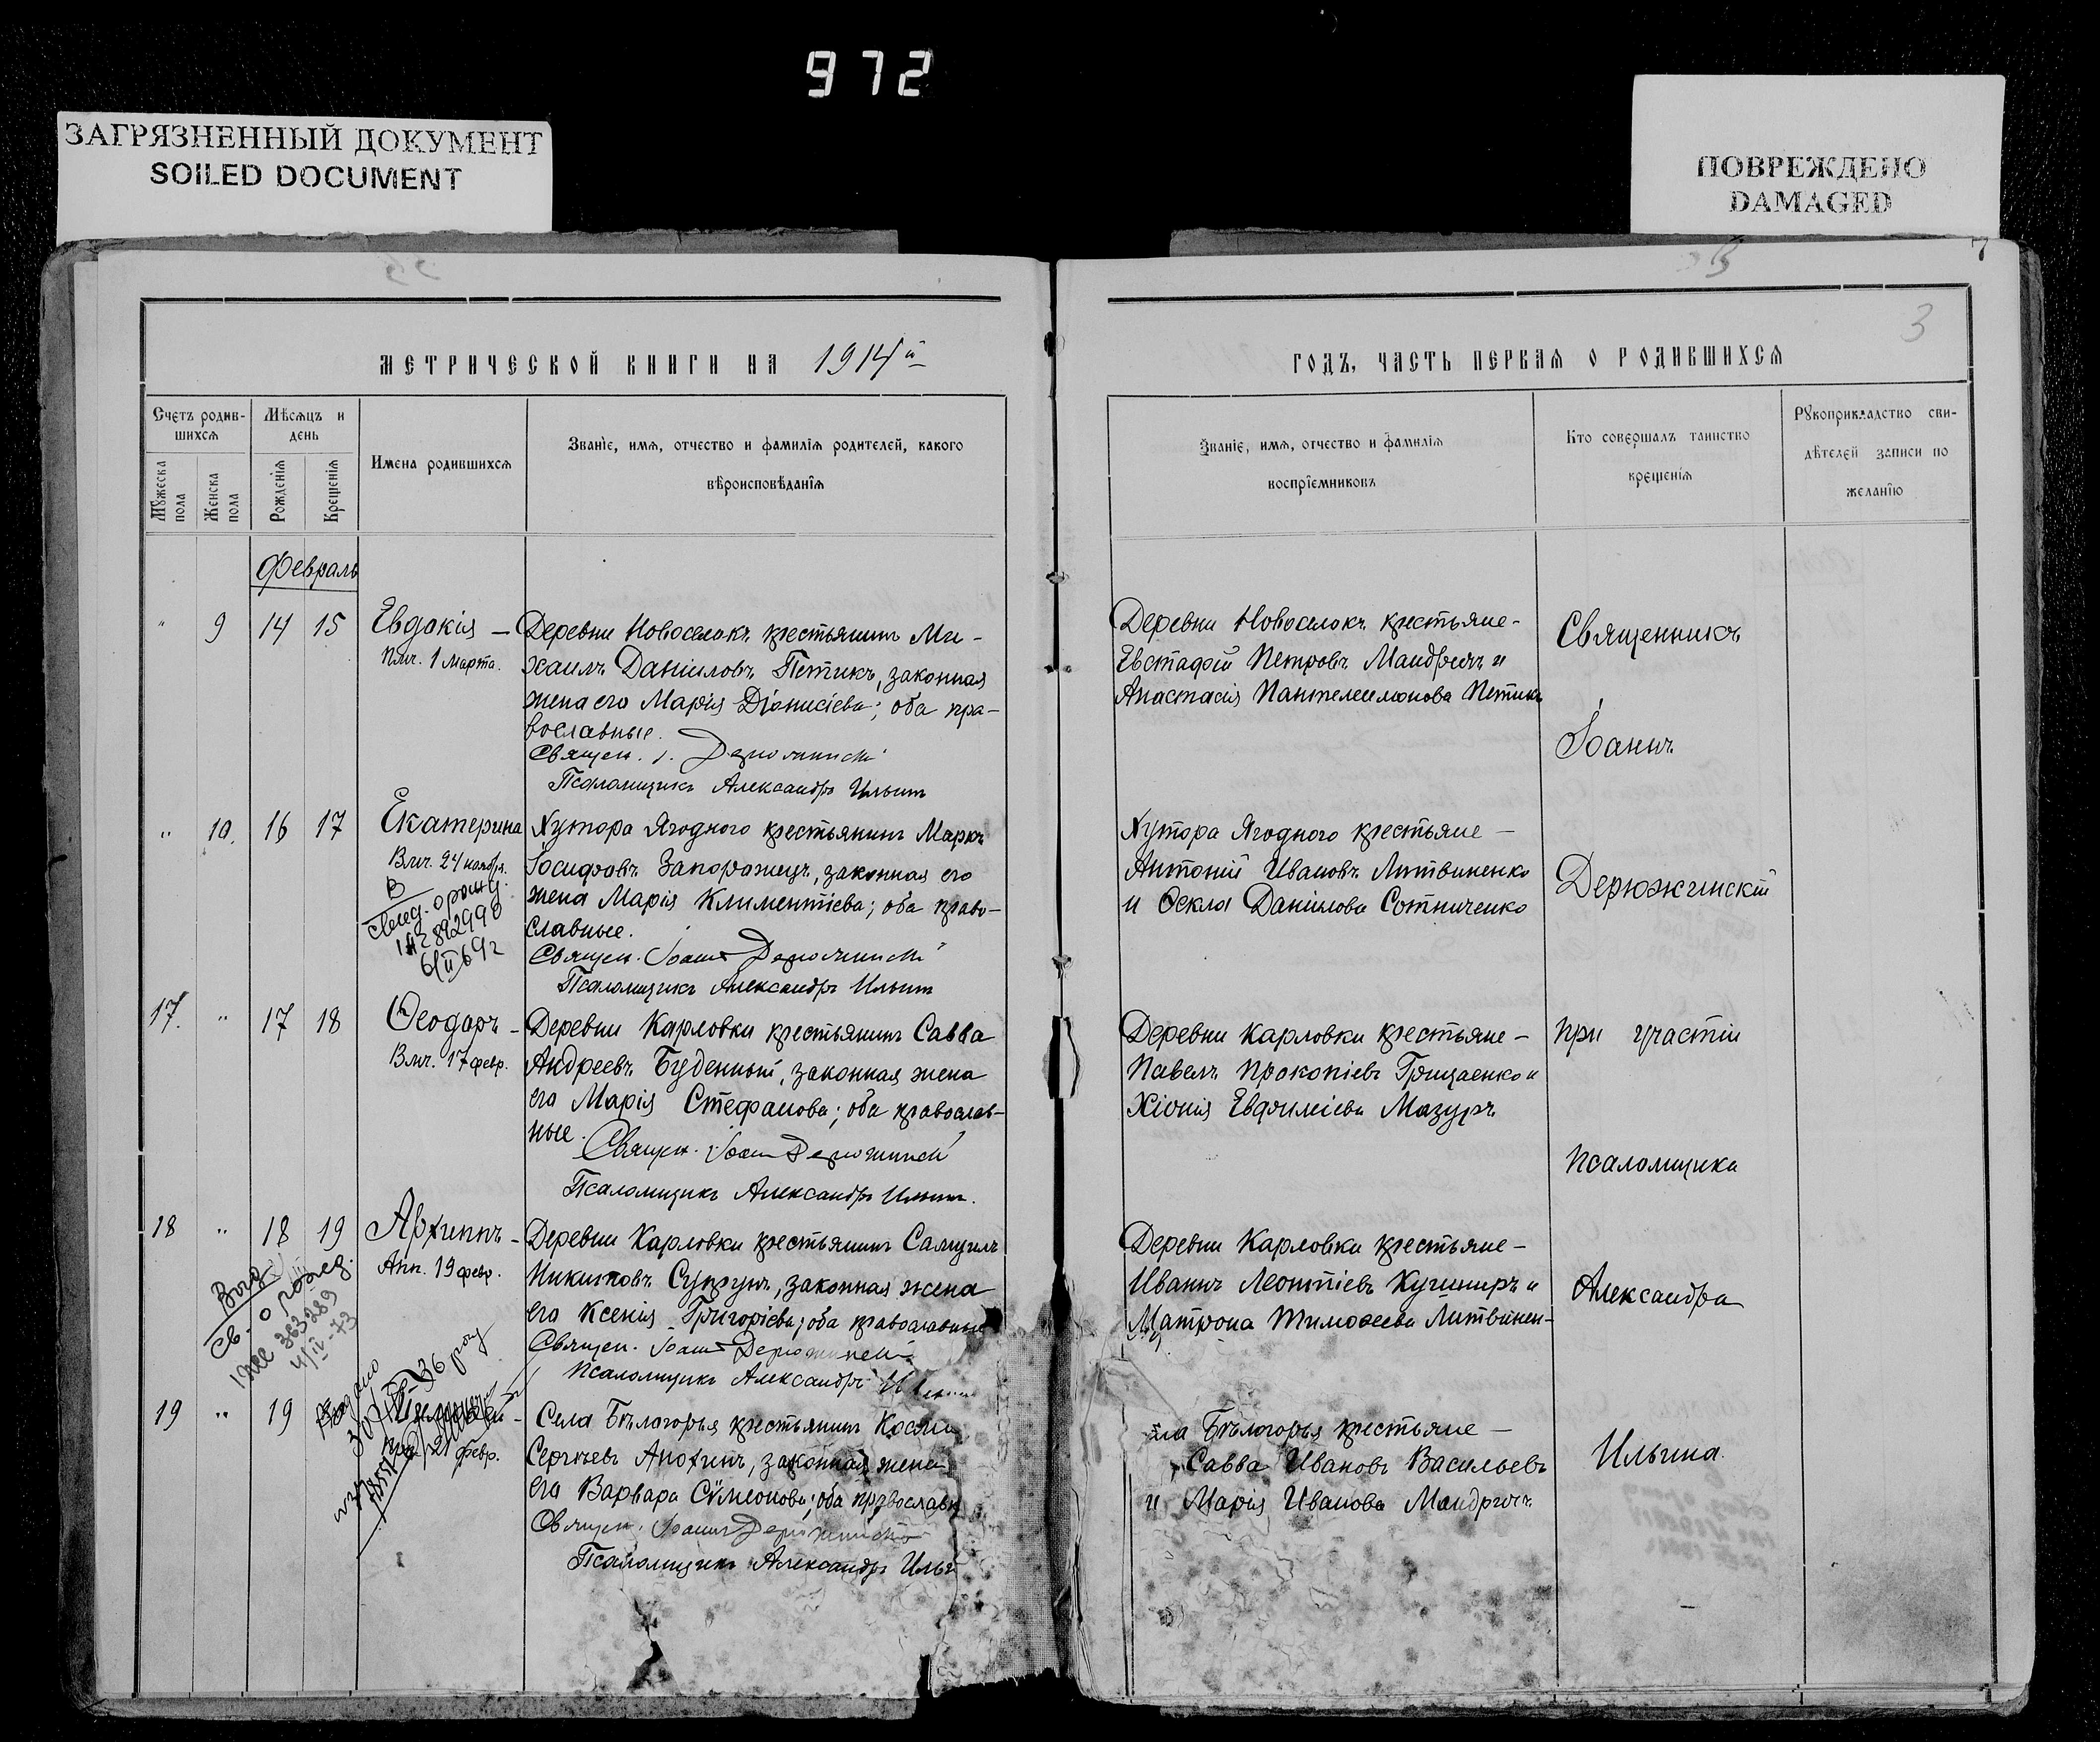 972
ЗАГРЯЗНЕННЫЙ ДОКУМЕНТ
SOILED DOCUMENT
ПОВРЕЖДЕНО
DAMAGED
7
3
МЕТРИЧЕСКОЙ КНИГИ НА 1914й
Счетъ родив-
шихся
Мужеска пола
Женска пола
Мѣсяцъ и
день
Рожденія
Крещенія
Имена родившихся
Званіе, имя, отчество и фамилія родителей, какого
вѣроисповѣданія
Февраль
" 9 14 15 Евдокія –
Имн. 1 марта.
Деревни Новоселокъ крестьянинъ Ми-
хаилъ Даніиловъ Петикъ, законная
жена его Марія Діонисіева; оба пра-
вославные.
Священ. І. Дерюжинскій
Псаломщикъ Александръ Ильинъ
" 10. 16 17 Екатерина
Влч. 24 ноябр.
В
свид. 
892990
Хутора Ягоднаго крестьянинъ Маркъ
Іосифовъ Запорожецъ, законная его
жена Марія Климентіева; оба право-
славные.
Священ. Іоаннъ Дерюжинскій
Псаломщикъ Александръ Ильинъ
17. " 17 18 Ѳеодоръ –
Влч. 17 февр.
Деревни Карловки крестьянинъ Савва
Андреевъ Буденный, законная жена
его Марія Стефанова; оба православ-
ные.
Священ. Іоаннъ Дерюжинскій
Псаломщикъ Александръ Ильинъ.
18 " 18 19 Архиппъ –
Апп. 19 февр.
св. о рожд.
363289
4/IV-73
Деревни Карловки крестьянинъ Самуилъ
Никитовъ Супрунъ, законная жена
его Ксенія Григоріева; оба православные
Священ. Іоаннъ Дерюжинскій
Псаломщикъ Александръ Ильинъ
19 " 19
21 февр.
Села Бѣлогорья крестьянинъ Косма
Сергѣевъ Анохинъ, законная жена
его Варвара Сѵмеонова; оба православн
Священ. Іоаннъ Дерюжинскій
Псаломщикъ Александръ Ильи
ГОДЪ, ЧАСТЬ ПЕРВАЯ О РОДИВШИХСЯ
Званіе, имя, отчество и фамилія
воспріемниковъ
Кто совершалъ таинство
крещенія
Рукоприкладство сви-
дѣтелей записи по
желанію
Деревни Новоселокъ крестьяне –
Евстафій Петровъ Мандрыкъ и
Анастасія Пантелеимонова Петикъ
Хутора Ягоднаго крестьяне –
Антоній Ивановъ Литвиненко
и Ѳекла Даніилова Сотниченко
Деревни Карловки крестьяне –
Павелъ Прокопіевъ Грицаенко и
Хіонія Евфиміева Мазуръ
Деревни Карловки крестьяне –
Иванъ Леонтіевъ Кушниръ и
Матрона Тимоѳеева Литвинен-
ла Бѣлогорья крестьяне –
Савва Ивановъ Васильевъ
и Марія Иванова Мандрыкъ
Священникъ
Іоаннъ
Дерюжинскій
при участіи
псаломщика
Александра
Ильина.